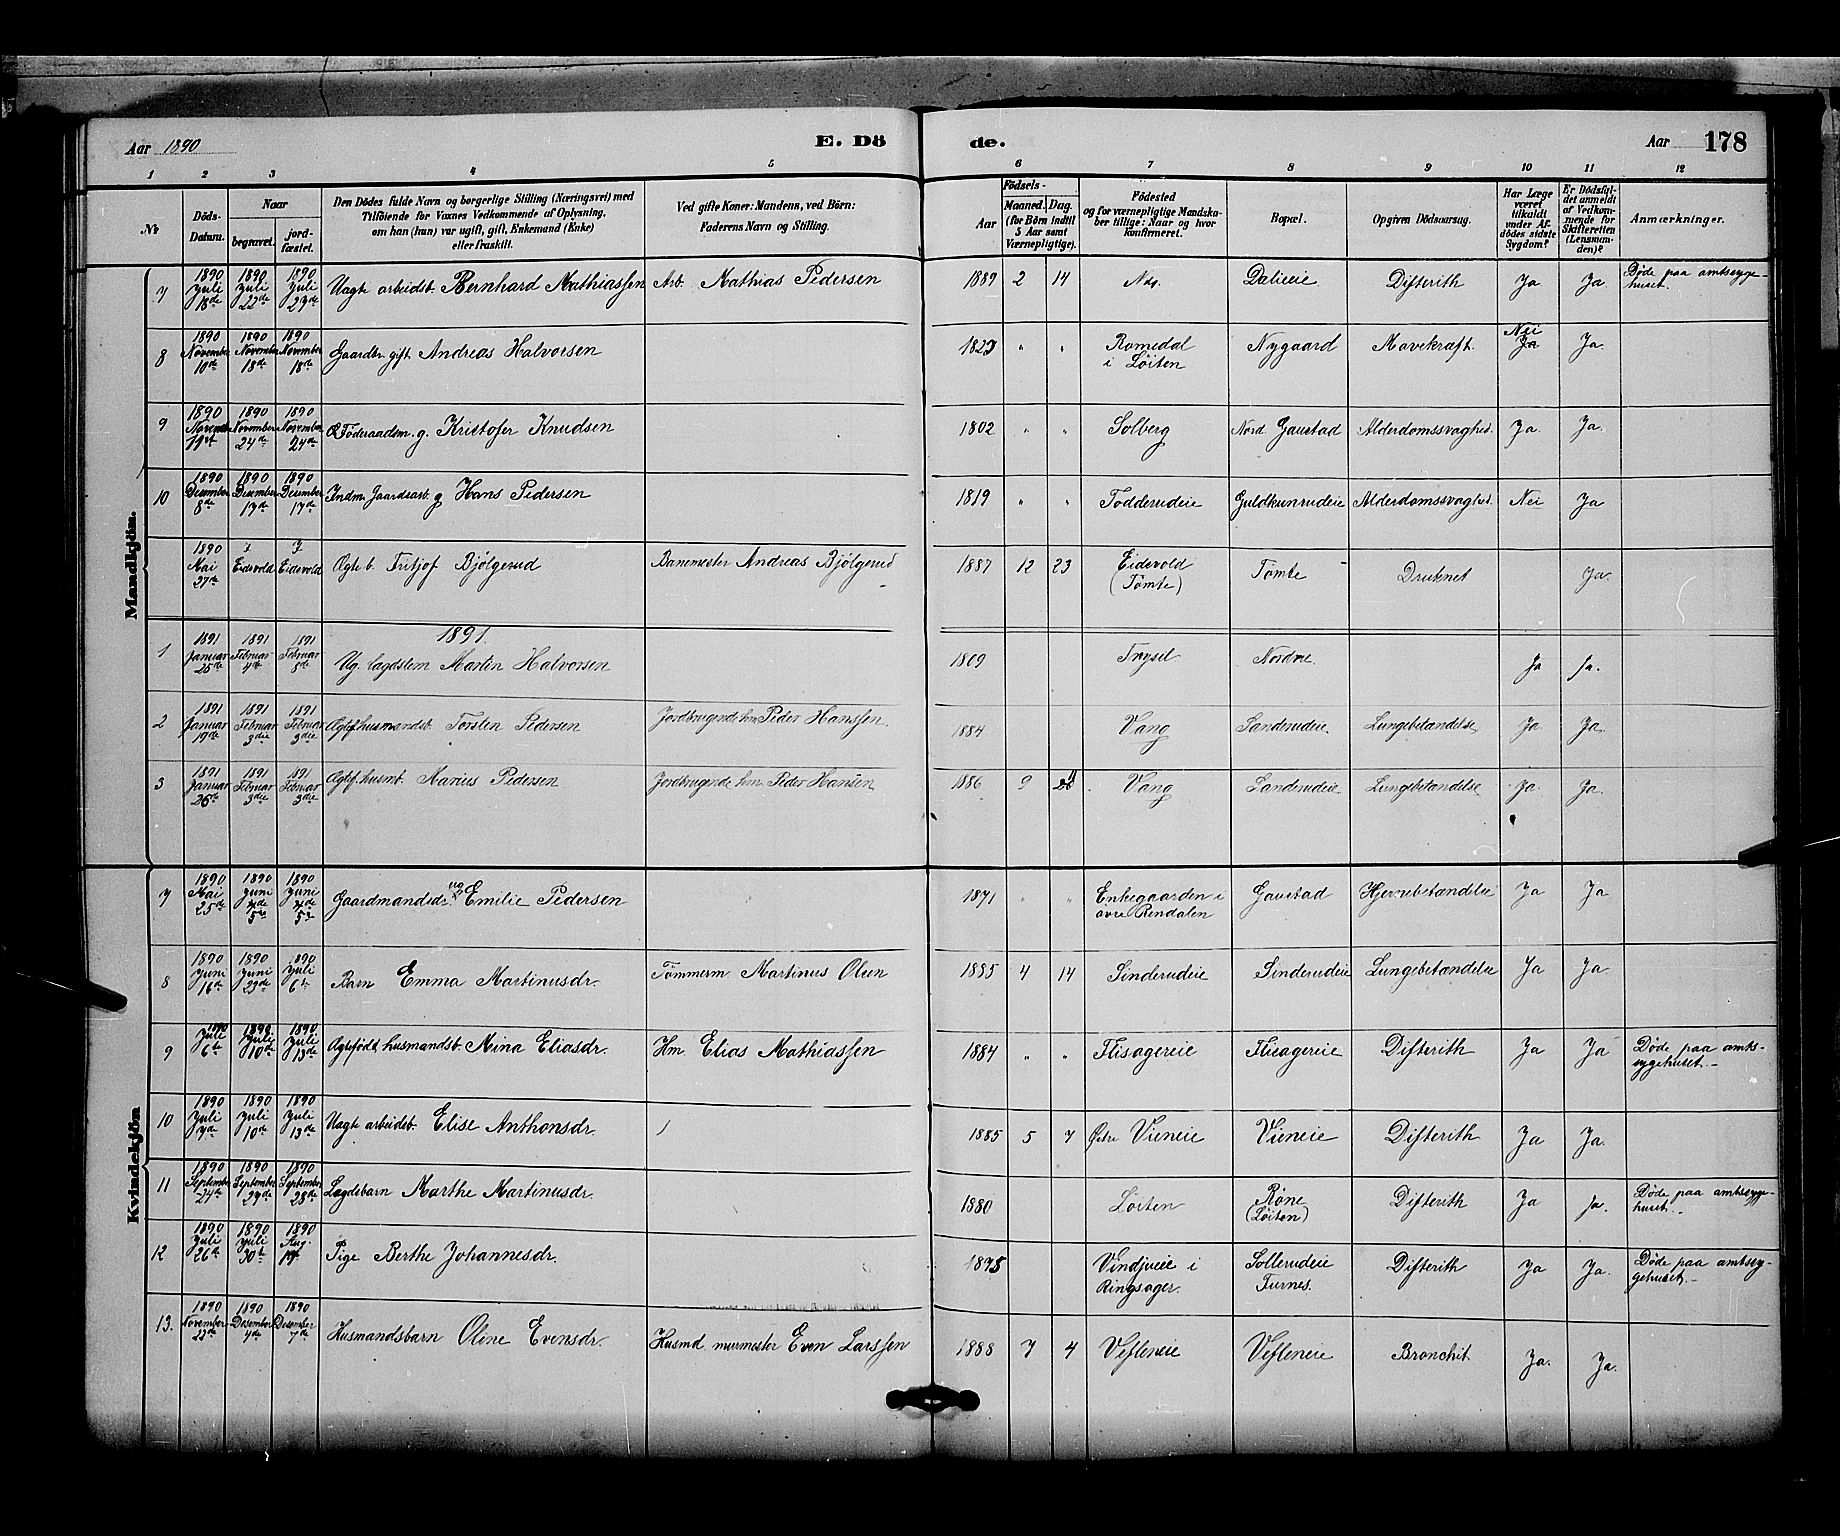 Aar 1890
E. Dö
de.
Aar
178
1 2 3 4 5 6 7 8 9 10 11 12
No
Döds-Datum.
Naar
begravet.
jord-fæstet.
Den Dödes fulde Navn og borgerlige Stilling (Næringsvei) med
Tilföiende for Voxnes Vedkommende af Oplysning,
om han (hun) var ugift, gift, Enkemand (Enke)
eller fraskilt.
Ved gifte Koner: Mandens, ved Börn:
Faderens Navn og Stilling.
Födsels-
Aar
Maaned. Dag.
(for Börn indtil
5 Aar samt
Værnepligtige).
Födested
og for værnepligtige Mandska-
ber tillige: Naar og hvor
konfirmeret.
Bopæl.
Opgiven Dödsaarsag.
Har Læge
været
tilkaldt
under Af-
dödes sidste
Sygdom?
Er Dödsfal-
det anmeldt
af Vedkom-
mende for
Skifteretten
(Lensman-
den)?
Anmærkninger.
Mandkjön.
7 1890 Juli 18de 1890 Juli 22de 1890 Juli 27de Uægte arbeidsb. Bernhard Mathiassen Arb. Mathias Pedersen 1889 2 14 Nds. Dalieie Difterith Ja Ja Døde paa amtssyge-
huset.
8 1890 November 10de 1890 November 18de 1890 November 18de Gaardbr. gift Andreas Halvorsen 1823 " " Romedal
i Løiten Nygaard Mavekræft. Nei Ja Ja.
9 1890 November 11te 1890 November 24de 1890 November 24de Føderaadsm. g. Kristofer Knudsen 1802 " " Solberg Nord Gaustad Alderdomssvaghed. Ja. Ja.
10 1890 Desember 8de 1890 Desember 17de 1890 Desember 17de Indm. Gaardsarb. g Hans Pedersen 1819 " " Todderudeie Guldkunrudeie Alderdomssvaghed. Nei Ja
1890 Mai 27de I Eidsvold I Eidsvold Ægte b. Fritjof Bjølgerud Banemester Andreas Bjølgerud 1887 12 23 Eidsvold
(Tømte) Tømte Druknet Ja.
1891.
1 1891 Januar 25de 1891 Februar 4de 1891 Februar 8de Ug. lægdslem Martin Halvorsen 1809 Trysil Nordre. Ja Ja.
2 1891 Januar 19de 1891 Februar 3die 1891 Februar 3die Ægtef. husmandsb. Torsten Pedersen Jordbrugende hm Peder Hanssen. 1884 Vang Sanderudeie. Lungebetændelse Ja Ja.
3 1891 Januar 26de 1891 Februar 3die 1891 Februar 3die Ægtef. husmb. Marius Pedersen Jordbrugende hm. Peder Hansen 1886 9 Vang Sanderudeie Lungebetændelse Ja Ja.
Kvindekjön
7 1890 Mai 25de 1890 Juni 5te 1890 Juni 5te Gaardmandsdr. ug Emilie Pedersen 1871 " " Enkegaarden i
øvre Rendalen Gaustad Hjernebetændelse Ja Ja.
8 1890 Juni 16de 1890 Juni 23de 1890 Juli 6te Barn Emma Martinusdr. Tømmerm Martinus Olsen 1885 4 14 Sinderudeie Sinderudeie Lungebetændelse Ja Ja.
9 1890 Juli 6te 1890 Juli 10de 1890 Juli 13de Ægtefødt husmandsb. Mina Eliasdr. Hm. Elias Mathiassen 1884 " " Flisagereie Flisagereie Difterith Ja Ja Døde paa amts-
sygehuset.-
10 1890 Juli 7de 1890 Juli 10de 1890 Juli 13de Uægte arbeidsb. Elise Anthonsdr. 1885 5 7 Østre Vieneie Vieneie Difterith Ja Ja.
11 1890 September 27de 1890 September 29de 1890 September 28de Lægdsbarn Marthe Martinusdr. 1880 Løiten Røne
(Løiten) Difterith Ja Ja. Døde paa amtssyge-
huset.-
12 1890 Juli 26de 1890 Juli 30te 1890 Aug. 17de Pige Berthe Johannesdr. 1875 Vindjueie i
Ringsager. Sollerudeie
Furnes. Difterith Ja Ja. Døde paa amtssy-
gehuset.-
13. 1890 November 22de 1890 Desember 4de 1890 Desember 7de Husmandsbarn Oline Evensdr. Husmd. murmester Even Larssen 1888 7 4 Vesleneie Vesleneie Bronchit. Ja. Ja.